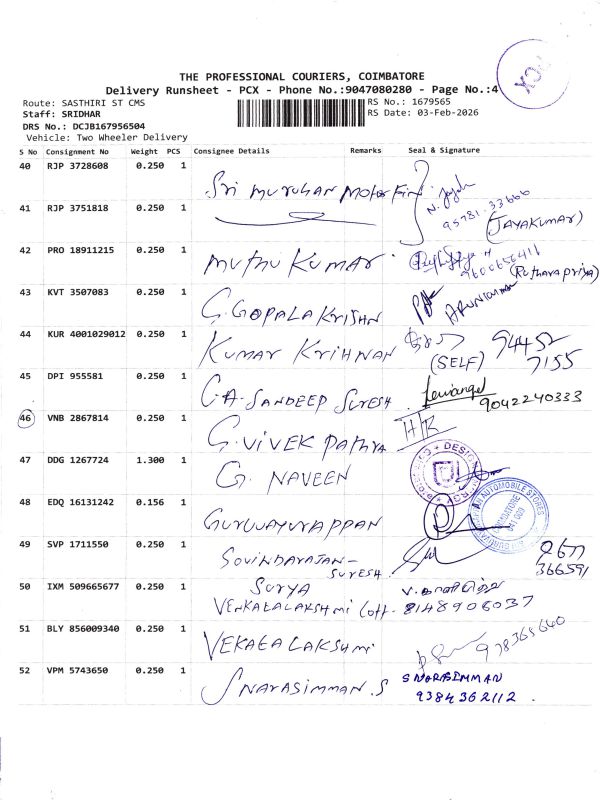 PCX
THE PROFESSIONAL COURIERS, COIMBATORE
Delivery Runsheet - PCX - Phone No.:9047080280 - Page No.:4
Route: SASTHIRI ST CMS
RS No.: 1679565
Staff: SRIDHAR
RS Date: 03-Feb-2026
DRS No.: DCJB167956504
Vehicle: Two Wheeler Delivery
S No Consignment No Weight PCS Consignee Details Remarks Seal & Signature
40 RJP 3728608 0.250 1 Sri Muruhan Motor Fin N. Jayak
95781-33666
41 RJP 3751818 0.250 1 (JAYAKUMAR)
42 PRO 18911215 0.250 1 Muthu Kumar 9600656411
(Ruthavapriya)
43 KVT 3507083 0.250 1 G. GOPALA KRISHN ARUNKUMAR
44 KUR 4001029012 0.250 1 KUMAR KRIHNAN (SELF) 94452
7155
45 DPI 955581 0.250 1 C.A. SANDEEP SURESH 9042240333
46 VNB 2867814 0.250 1 G. VIVEK PATHYA H/R
47 DDG 1267724 1.300 1 G. NAVEEN
48 EDQ 16131242 0.156 1 GURUVAYURAPPAN
AUTOMOBILE STORES
49 SVP 1711550 0.250 1 SOVINDARAJAN-
SURESH
366591
50 IXM 509665677 0.250 1 SURYA
VENKATALAKSHMI (off- 8148906037
51 BLY 856009340 0.250 1 VEKATALAKSHMI 978365640
52 VPM 5743650 0.250 1 S NARASIMMAN.S S NARASIMMAN
9384362112.